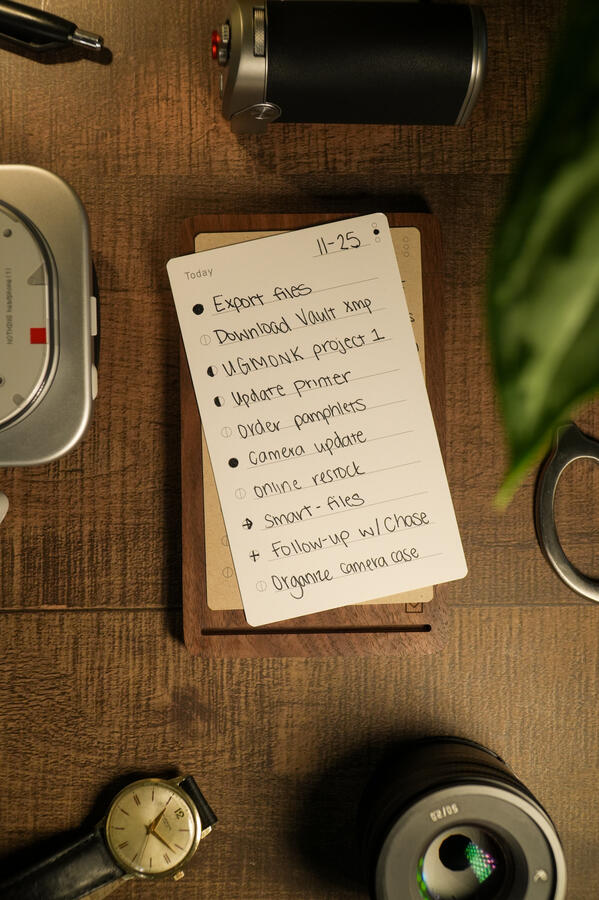 11-25
Today
Export files
Download Vault xmp
UGMONK project 1
Update primer
Order pamphlets
Camera update
online restock
Smart-files
Follow-up w/ Chase
Organize camera case
NOTHING headphone (1)